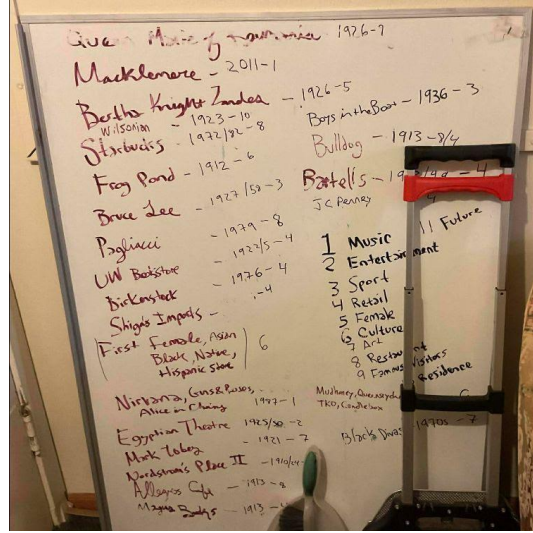 Queen Marie of Roumania 1926-9
Macklemore - 2011-1
Bertha Knight Landes - 1926-5
Wilsonian - 1923-10
Starbucks - 1972/82-8
Frog Pond - 1912-6
Bruce Lee - 1927/59-3
Pagliacci - 1979-8
UW Bookstore - 1922/5-4
Birkenstock - 1976-4
Shiga's Imports - -4
First Female, Asian
Black, Native,
Hispanic Store
6
Nirvana, Guns & Roses,
Alice in Chains 1987-1
Egyptian Theatre 1925/30-2
Mark Tobey - 1921-7
Nordstrom's Place II - 1910/24-
Allegro Cafe - 1913-8
Magus Books - 1913-
Boys in the Boat - 1936-3
Bulldog - 1913-8/4
Bartell's - 4
JC Penney 4
11 Future
1 Music
2 Entertainment
3 Sport
4 Retail
5 Female
6 Culture
7 Art
8 Restaurant
9 Famous Visitors
Residence
Mudhoney, Queensryche
TKO, Candlebox
Black Divas 1970s-7